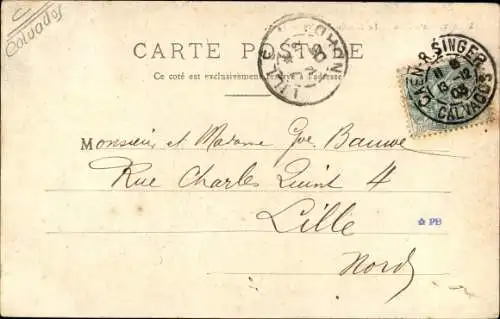 Calvados
CARTE POSTALE
Ce côté est exclusivement réservé à l'adresse
LILLE
CAEN-R. SINGER
CALVADOS
Monsieur et Madame Gve. Bauwe
Rue Charles Quint 4
Lille
PB
Nord